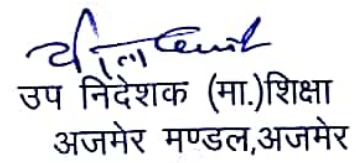 उप निदेशक (मा.)शिक्षा
अजमेर मण्डल,अजमेर